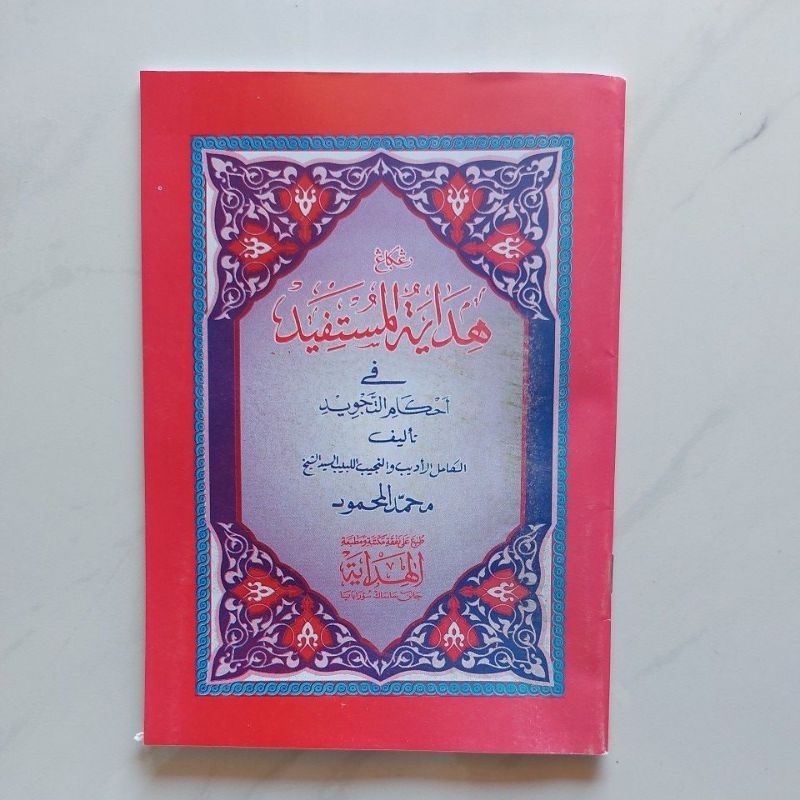 هِدَايَةُ الْمُسْتَفِيْد
فِي
أَحْكَامِ التَّجْوِيْدِ
تأليف
الكامل الأديب والنجيب اللبيب السيد الشيخ
محمّد المحمود
طبع على نفقة مكتبة ومطبعة
الهداية
جالن ساساك سورابايا